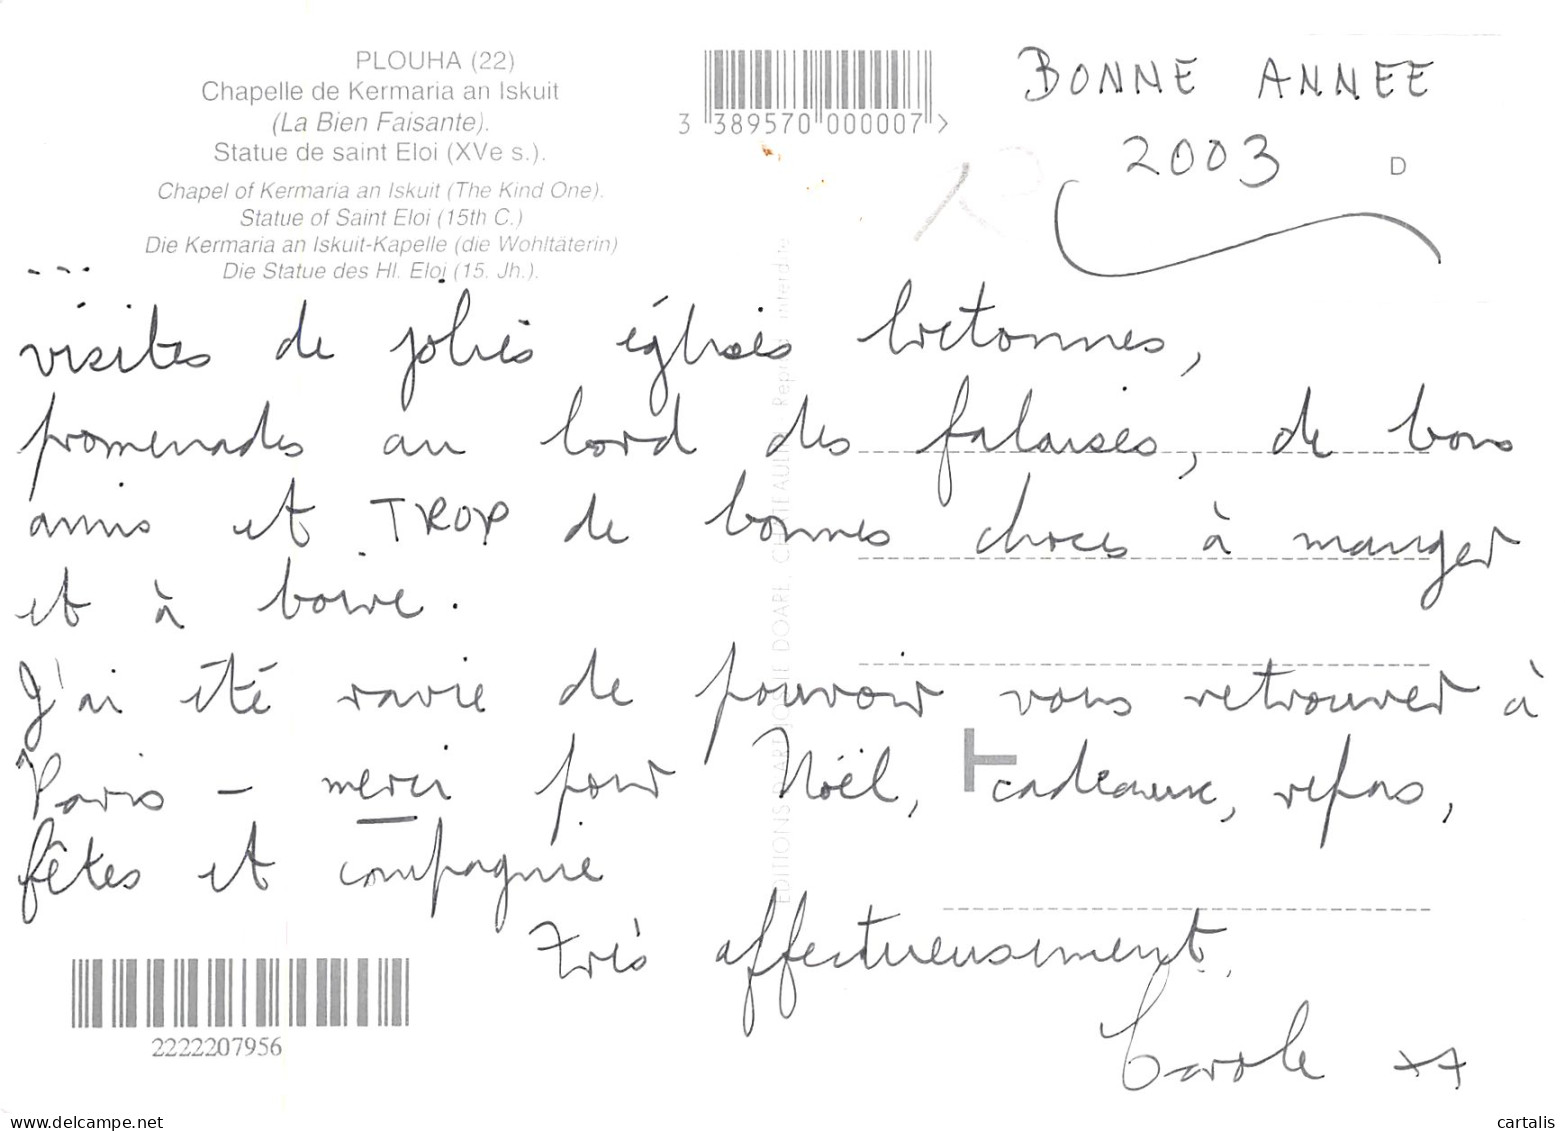 PLOUHA (22)
Chapelle de Kermaria an Iskuit
(La Bien Faisante).
Statue de saint Eloi (XVe s.).
Chapel of Kermaria an Iskuit (The Kind One).
Statue of Saint Eloi (15th C.)
Die Kermaria an Iskuit-Kapelle (die Wohltäterin)
Die Statue des Hl. Eloi (15. Jh.).
3 389570 000007 >
BONNE ANNEE
2003
D
...
visites de jolies églises bretonnes,
promenades au bord des falaises, de bons
amis et TROP de bonnes choses à manger
et à boire.
J'ai été ravie de pouvoir vous retrouver à
Paris - merci pour Noël, cadeaux, repas,
fêtes et compagnie
Très affectueusement.
Carole xx
EDITIONS D'ART JOS LE DOARE, CHATEAULIN. Repro interdite
2222207956
www.delcampe.net
cartalis